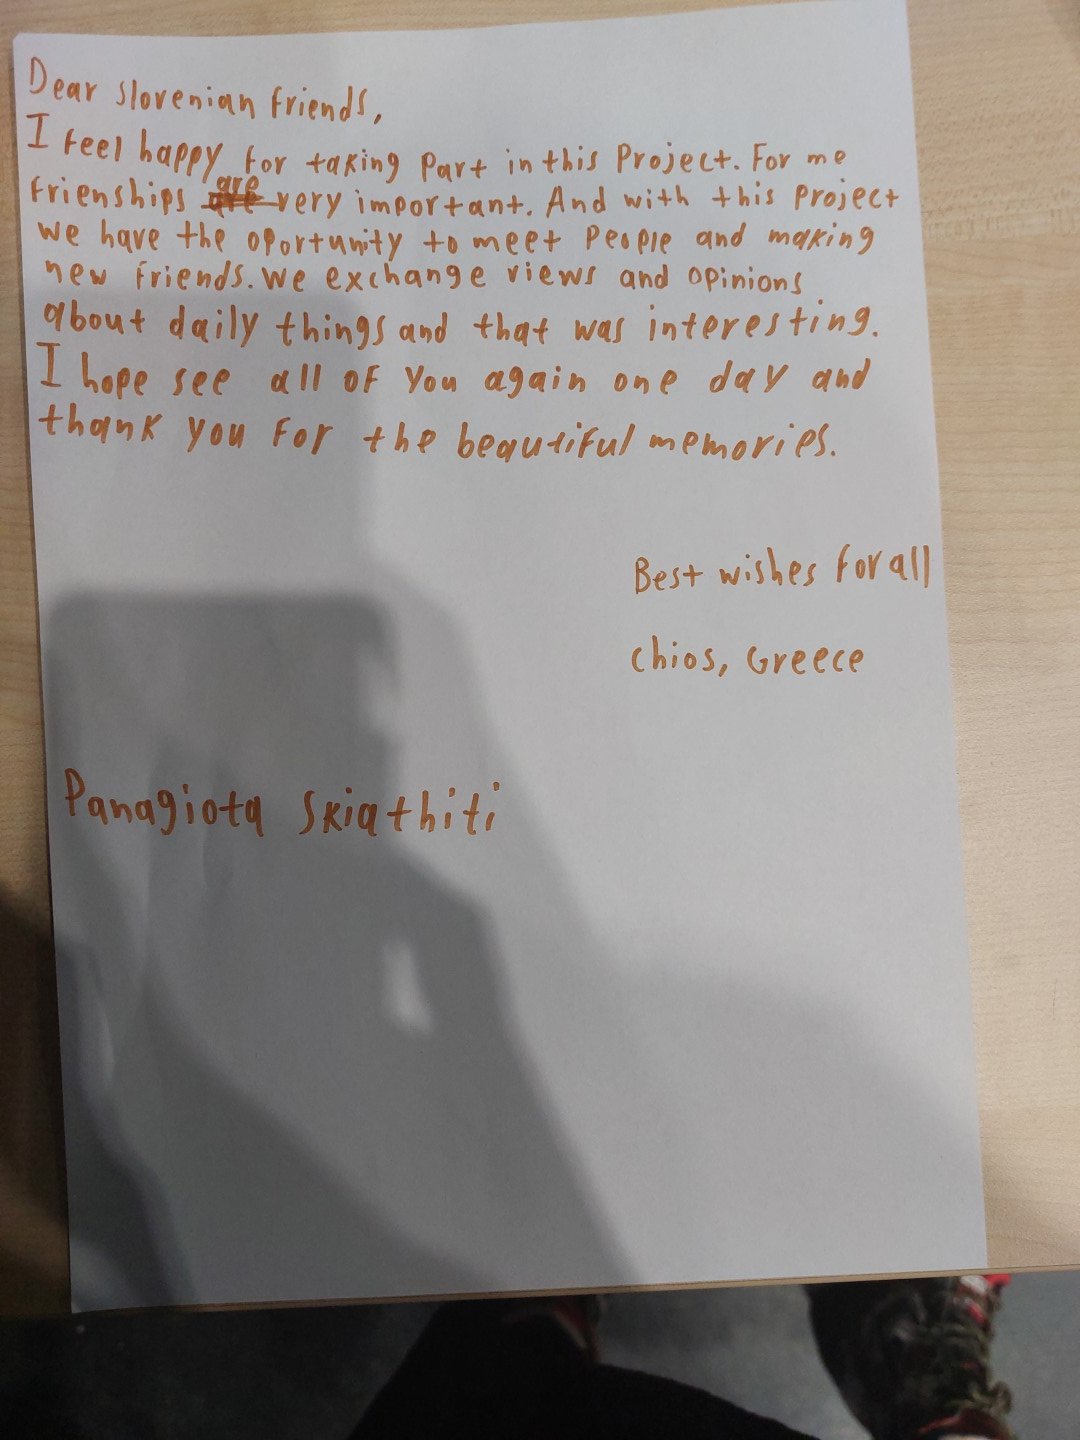 Dear Slovenian friends,
I feel happy for taking Part in this Project. For me
frienships are very important. And with this Project
we have the oportunity to meet People and making
new friends. We exchange views and opinions
about daily things and that was interesting.
I hope see all of you again one day and
thank you for the beautiful memories.
Best wishes for all
Chios, Greece
Panagiota Skiathiti